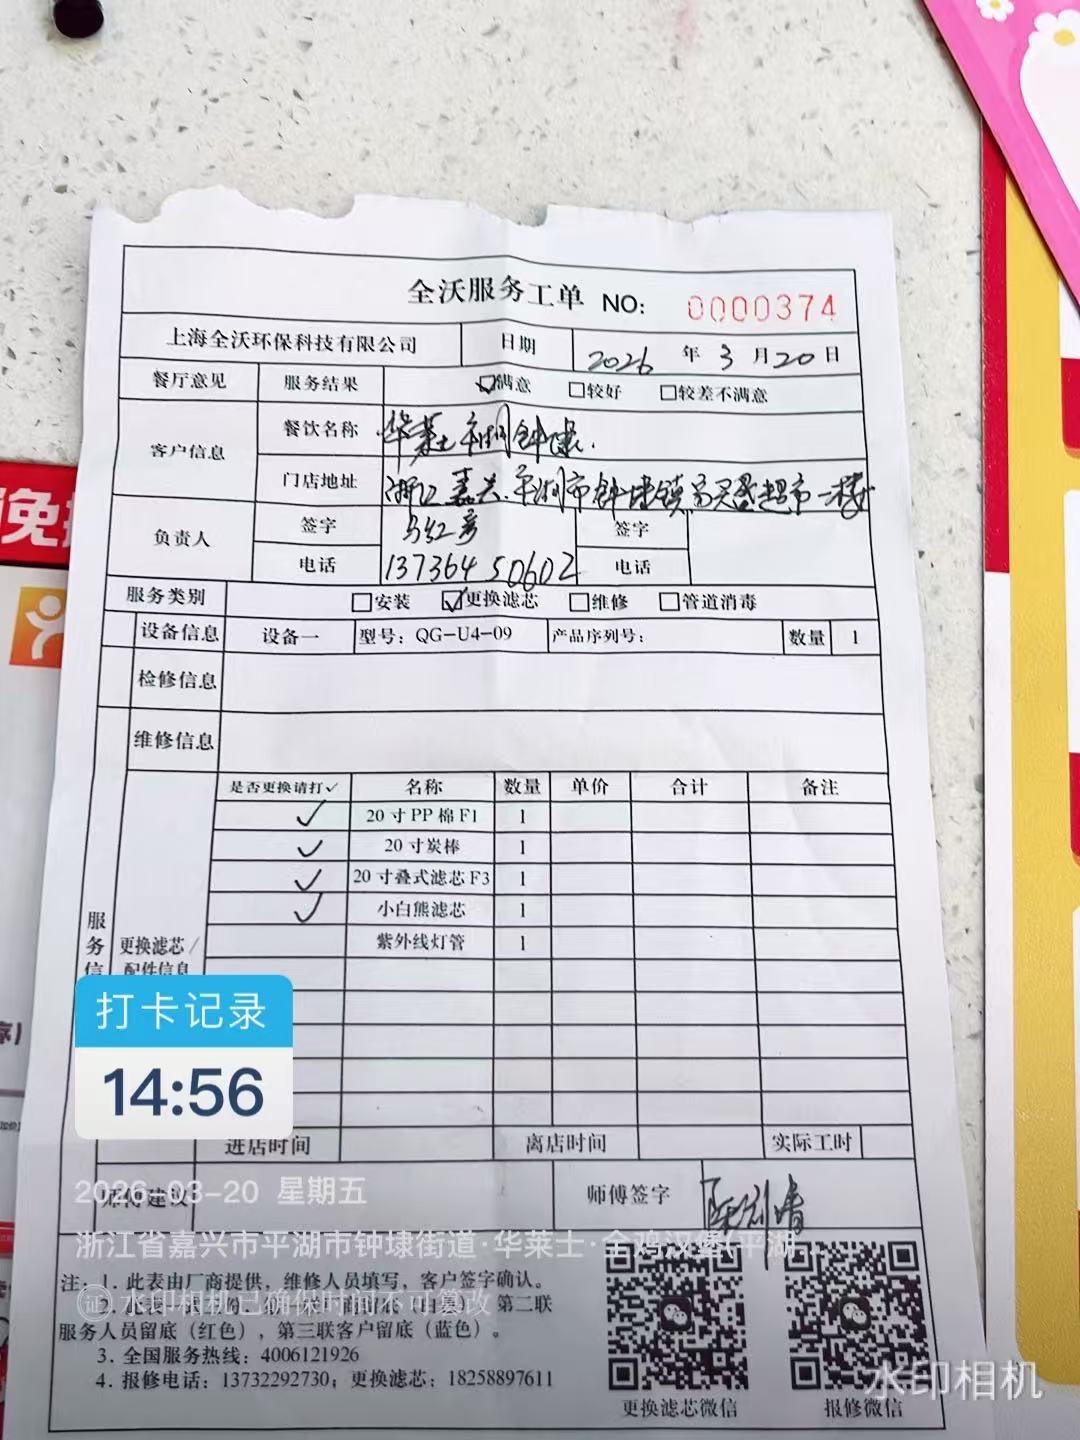 全沃服务工单 NO: 0000374
上海全沃环保科技有限公司 日期 2026 年 3 月 20 日
餐厅意见 服务结果 ☑满意 □较好 □较差不满意
客户信息 餐饮名称 华莱士平湖钟埭
门店地址 浙江嘉兴平湖市钟埭镇 超市一楼
负责人 签字 签字
电话 13736450602 电话
服务类别 □安装 ☑更换滤芯 □维修 □管道消毒
设备信息 设备一 型号: QG-U4-09 产品序列号: 数量 1
检修信息
维修信息
是否更换请打✓ 名称 数量 单价 合计 备注
✓ 20寸PP棉F1 1
✓ 20寸炭棒 1
✓ 20寸叠式滤芯F3 1
✓ 小白熊滤芯 1
紫外线灯管 1
服务信
更换滤芯/
配件信息
打卡记录
14:56
进店时间 离店时间 实际工时
师傅建议 师傅签字
2026-03-20 星期五
浙江省嘉兴市平湖市钟埭街道·华莱士·全鸡汉堡(平湖...
注: 1. 此表由厂商提供,维修人员填写,客户签字确认。
证 水印相机已确保时间不可篡改
第二联
服务人员留底(红色),第三联客户留底(蓝色)。
3. 全国服务热线: 4006121926
4. 报修电话: 13732292730; 更换滤芯: 18258897611
更换滤芯微信 报修微信
水印相机
免